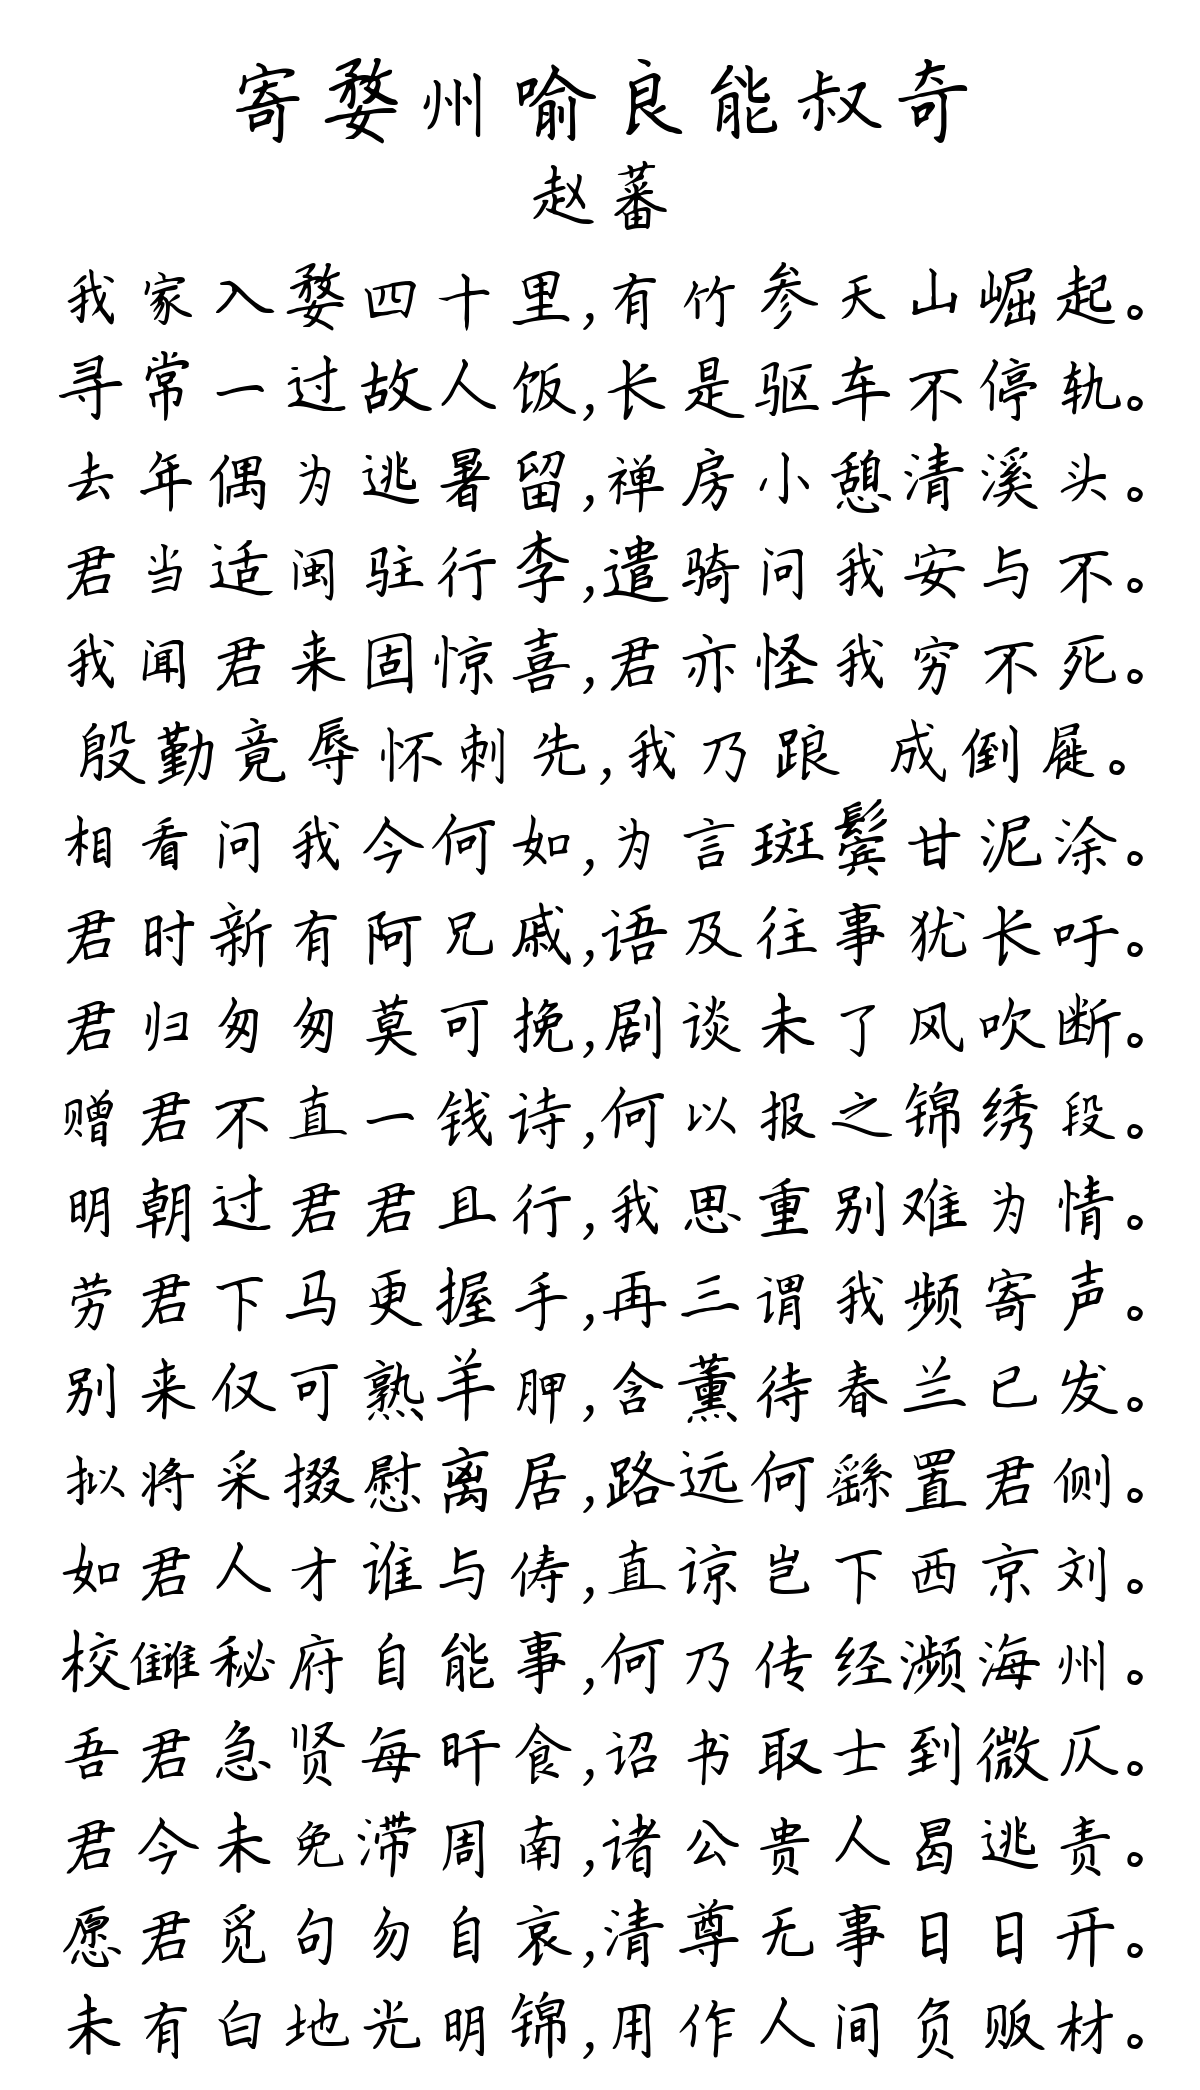 寄婺州喻良能叔奇
赵蕃
我家入婺四十里,有竹参天山崛起。
寻常一过故人饭,长是驱车不停轨。
去年偶为逃暑留,禅房小憩清溪头。
君当适闽驻行李,遣骑问我安与不。
我闻君来固惊喜,君亦怪我穷不死。
殷勤竟辱怀刺先,我乃踉 成倒屣。
相看问我今何如,为言斑鬓甘泥涂。
君时新有阿兄戚,语及往事犹长吁。
君归匆匆莫可挽,剧谈未了风吹断。
赠君不直一钱诗,何以报之锦绣段。
明朝过君君且行,我思重别难为情。
劳君下马更握手,再三谓我频寄声。
别来仅可熟羊胛,含薰待春兰已发。
拟将采掇慰离居,路远何繇置君侧。
如君人才谁与俦,直谅岂下西京刘。
校雠秘府自能事,何乃传经濒海州。
吾君急贤每旰食,诏书取士到微仄。
君今未免滞周南,诸公贵人曷逃责。
愿君觅句勿自哀,清尊无事日日开。
未有白地光明锦,用作人间负贩材。